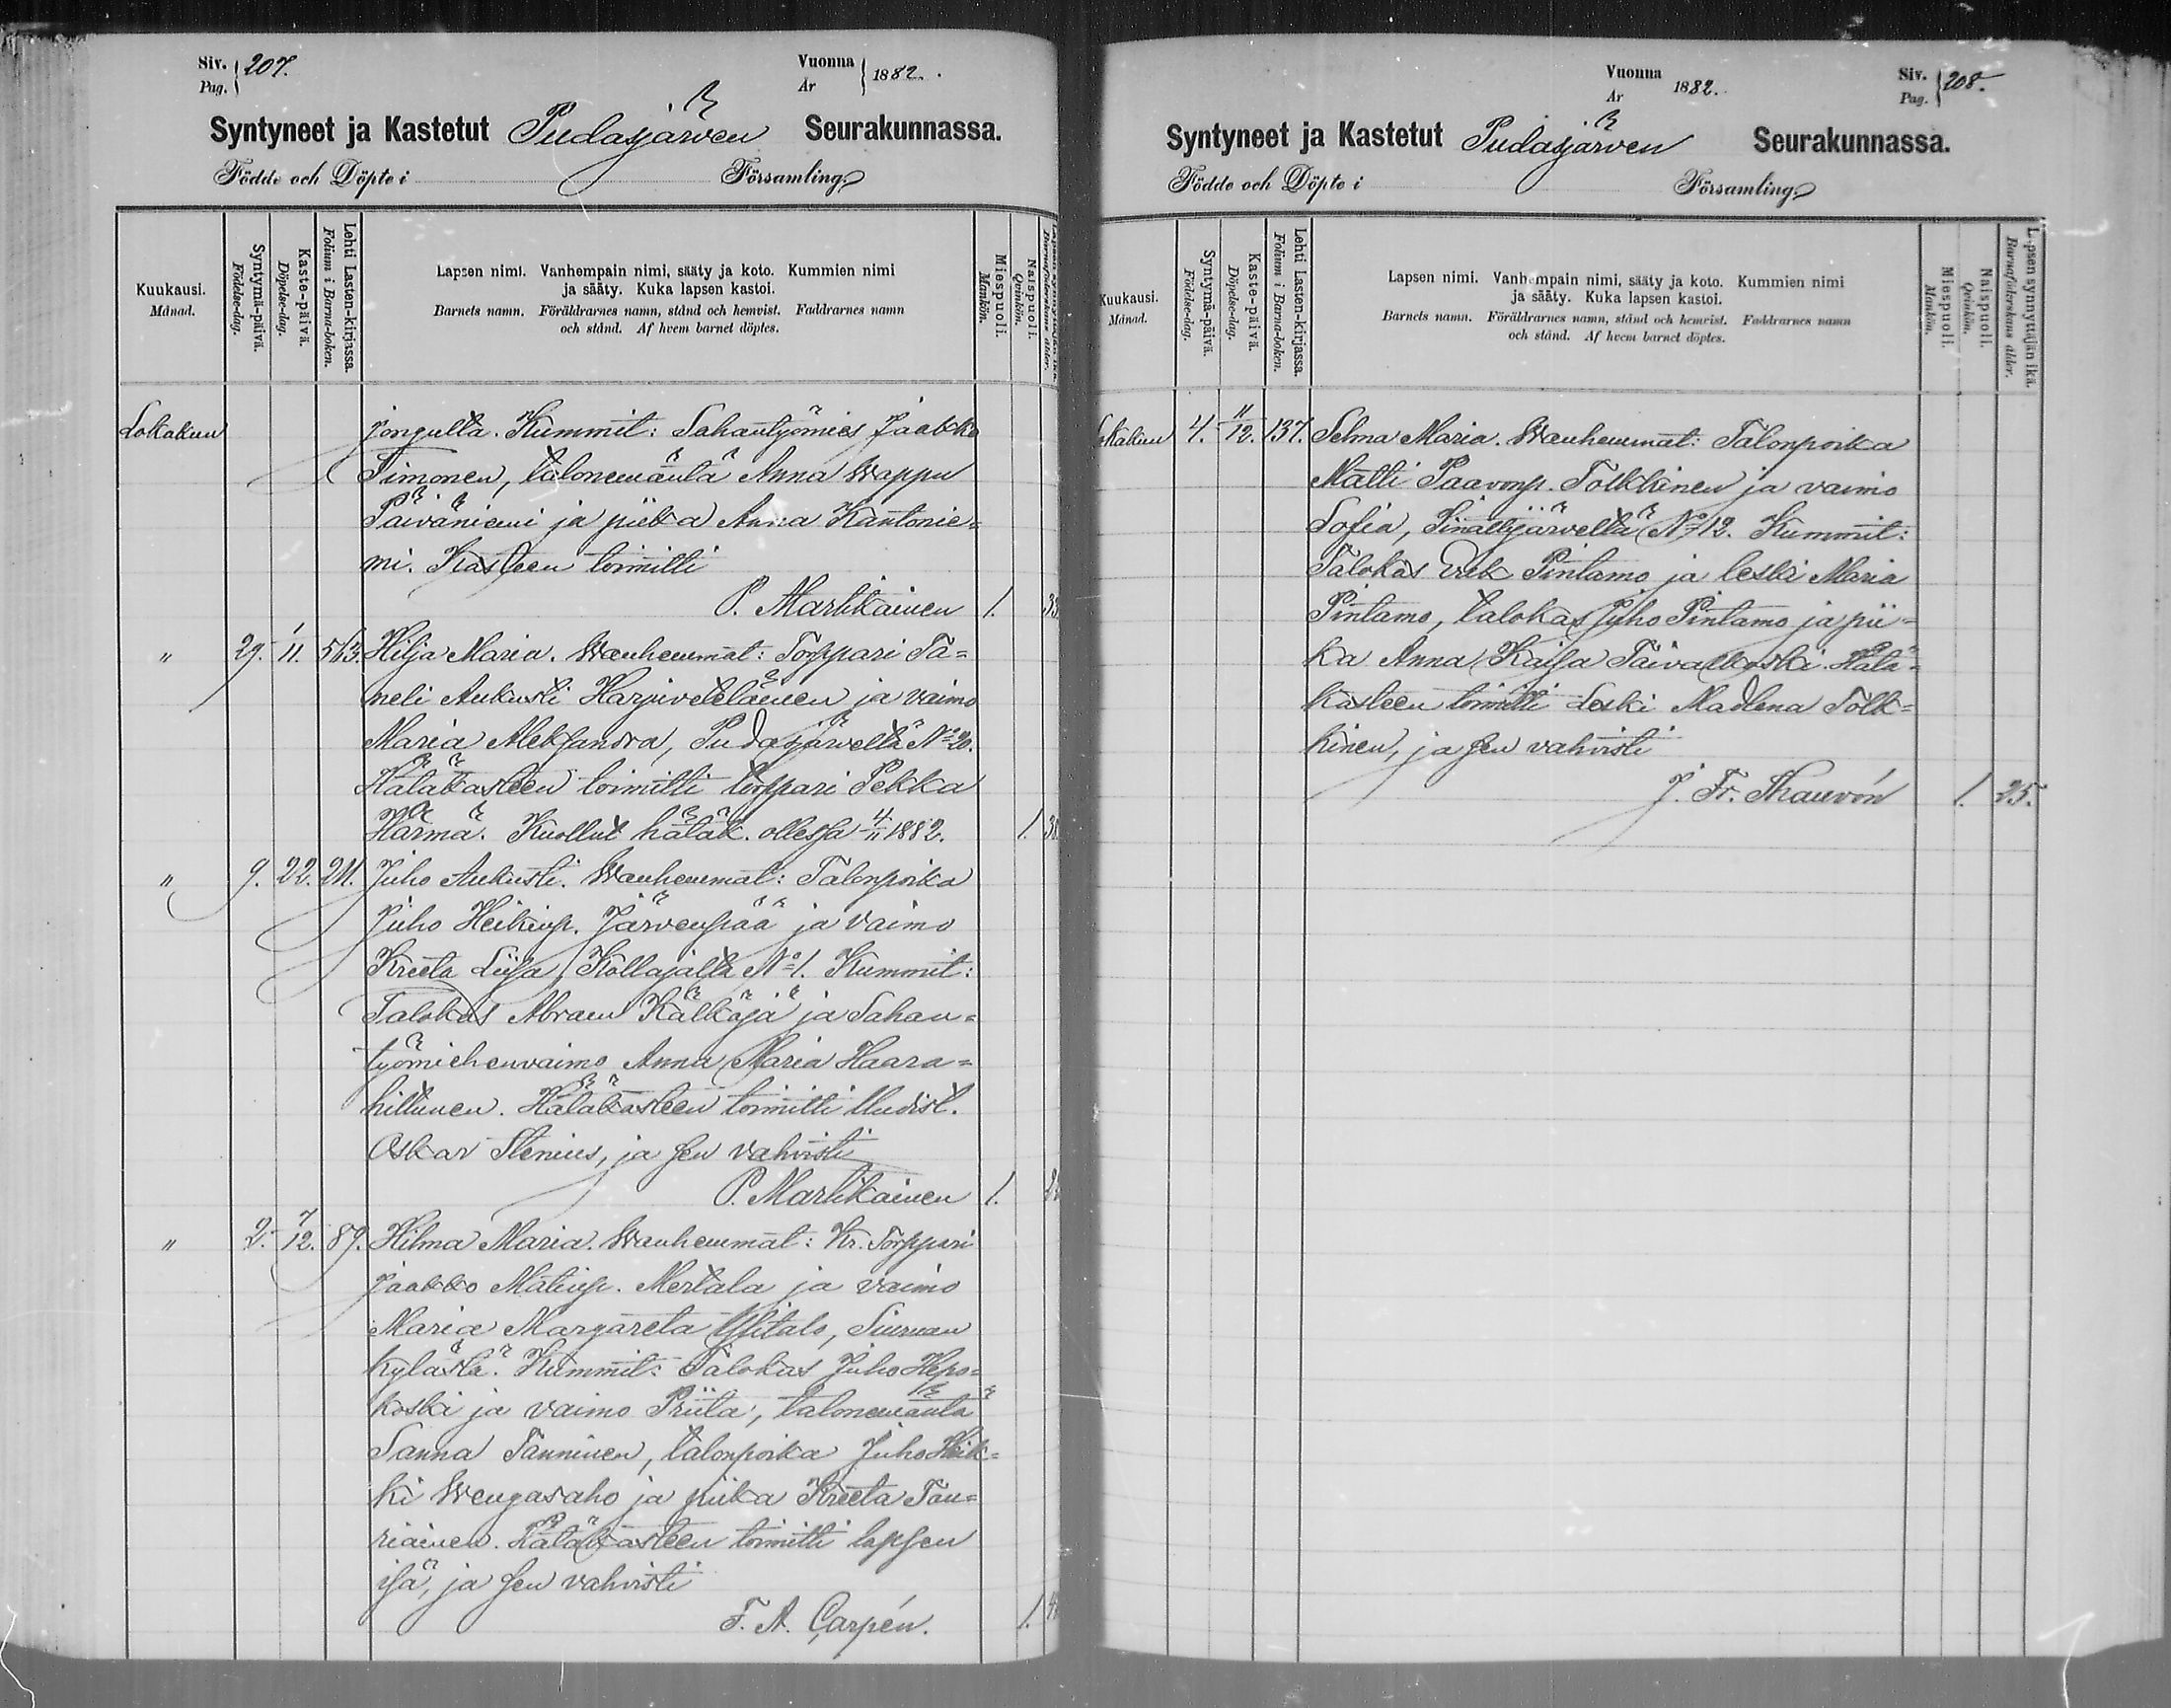 Siv. 207.
Pag.
Vuonna 1882.
År
Syntyneet ja Kastetut Pudasjärven Seurakunnassa.
Födde och Döpte i Församling
Kuukausi.
Månad.
Syntymä-päivä.
Födelse-dag.
Kaste-päivä.
Döpelse-dag.
Lehti Lasten-kirjassa.
Folium i Barna-boken.
Lapsen nimi. Vanhempain nimi, sääty ja koto. Kummien nimi
ja sääty. Kuka lapsen kastoi.
Barnets namn. Föräldrarnes namn, stånd och hemvist. Faddrarnes namn
och stånd. Af hvem barnet döptes.
Miespuoli.
Mankön.
Naispuoli.
Qvinkön.
Lokakuu jongulta. Kummit: Sahantyömies Jaakko
Timonen, talonemäntä Anna Wappu
Päiväniemi ja piika Anna Kantonie=
mi. Kasteen toimitti
P. Martikainen 1. 33
" 29. 1/11. 563. Hilja Maria. Wanhemmat: Torppari Ta=
neli Aukusti Harjuveteläinen ja vaimo
Maria Aleksandra, Pudasjärveltä No 20.
Hätäkasteen toimitti torppari Pekka
Härmä. Kuollut hätäk. ollessa 4/11 1882. 1. 38
" 9. 22. 211. Juho Aukusti. Wanhemmat: Talonpoika
Juho Heikinp. Järvenpää ja vaimo
Kreeta Liisa, Kollajalta No 1. Kummit:
Talokas Abram Kälkäjä ja Sahan=
työmiehenvaimo Anna Maria Haara=
hiltunen. Hätäkasteen toimitti Uudist.
Oskar Stenius, ja sen vahvisti
P. Martikainen 1.
" 2. 7/12. 89. Hilma Maria. Wanhemmat: Kr. Torppari
Jaakko Matinp. Mertala ja vaimo
Maria Margareta Ylitalo, Siuruan
kylästä. Kummit: Talokas Juho Hepo=
koski ja vaimo Priita, talonemäntä
Sanna Tanninen, talonpoika Juho Heik=
ki Wengasaho ja piika Kreeta Tau=
riainen. Hätäkasteen toimitti lapsen
isä, ja sen vahvisti
F. A. Carpén. 1.
Vuonna 1882.
År
Siv. 208.
Pag.
Syntyneet ja Kastetut Pudasjärven Seurakunnassa.
Födde och Döpte i Församling
Kuukausi.
Månad.
Syntymä-päivä.
Födelse-dag.
Kaste-päivä.
Döpelse-dag.
Lehti Lasten-kirjassa.
Folium i Barna-boken.
Lapsen nimi. Vanhempain nimi, sääty ja koto. Kummien nimi
ja sääty. Kuka lapsen kastoi.
Barnets namn. Föräldrarnes namn, stånd och hemvist. Faddrarnes namn
och stånd. Af hvem barnet döptes.
Miespuoli.
Mankön.
Naispuoli.
Qvinkön.
Lapsen synnyttäjän ikä.
Barnaföderskans ålder.
Lokakuu 4. 11/12. 137. Selma Maria. Wanhemmat: Talonpoika
Matti Paavonp. Tolkkinen ja vaimo
Sofia, Sinättijärveltä No 12. Kummit:
Talokas Erik Pintamo ja leski Maria
Pintamo, talokas Juho Pintamo ja pii=
ka Anna Kaisa Taivalkoski. Hätä=
kasteen toimitti Leski Madlena Tolk=
kinen, ja sen vahvisti
J. Fr. Thauvón 1. 25.